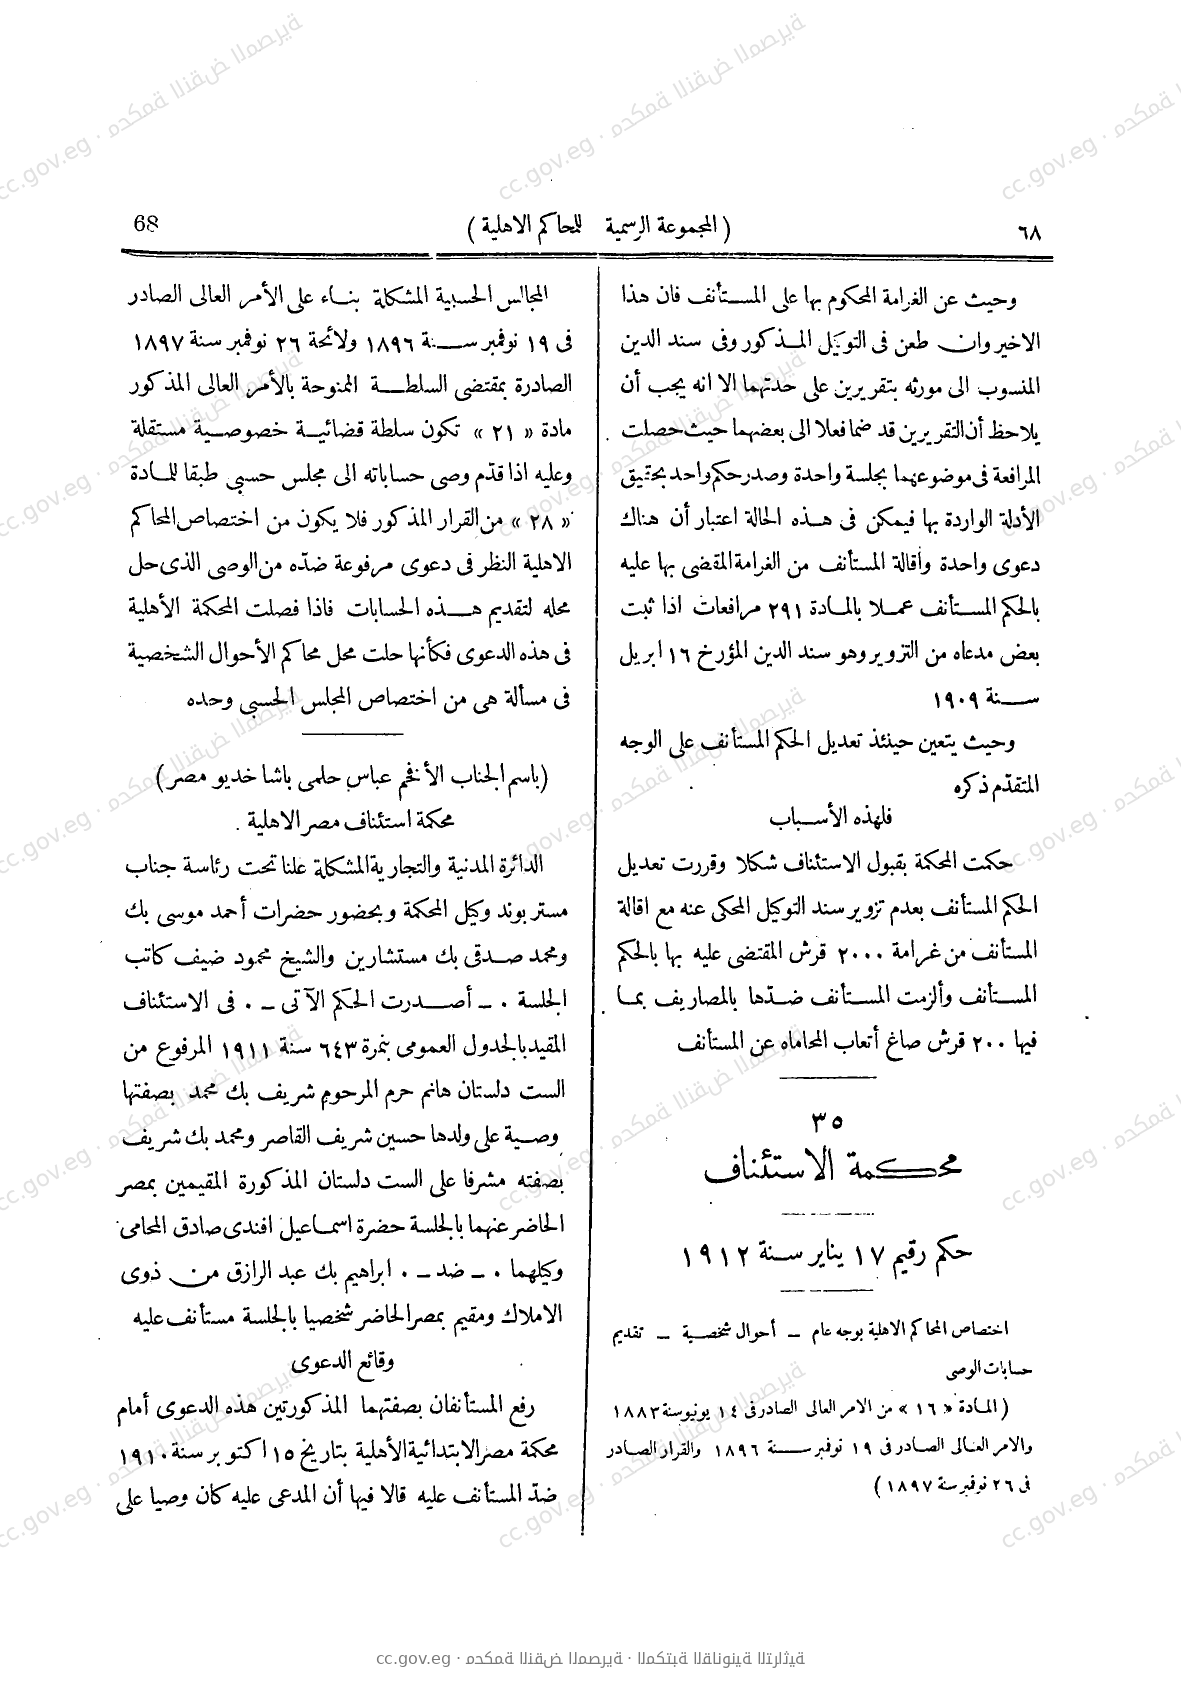 ٦٨
( المجموعة الرسمية للمحاكم الاهلية )
68
وحيث عن الغرامة المحكوم بها على المستأنف فان هذا
الاخير وان طعن فى التوكيل المذكور وفى سند الدين
المنسوب الى مورثه بتقريرين على حدتهما الا انه يجب أن
يلاحظ أن التقريرين قد ضما فعلا الى بعضهما حيث حصلت
المرافعة فى موضوعهما بجلسة واحدة وصدر حكم واحد بتحقيق
الأدلة الواردة بها فيمكن فى هذه الحالة اعتبار أن هناك
دعوى واحدة وأقالة المستأنف من الغرامة المقضى بها عليه
بالحكم المستأنف عملا بالمادة ٢٩١ مرافعات اذا ثبت
بعض مدعاه من التزوير وهو سند الدين المؤرخ ١٦ ابريل
سنة ١٩٠٩
وحيث يتعين حينئذ تعديل الحكم المستأنف على الوجه
المتقدّم ذكره
فلهذه الأسباب
حكمت المحكمة بقبول الاستئناف شكلا وقررت تعديل
الحكم المستأنف بعدم تزوير سند التوكيل المحكى عنه مع اقالة
المستأنف من غرامة ٢٠٠٠ قرش المقتضى عليه بها بالحكم
المستأنف وألزمت المستأنف ضدّها بالمصاريف بما
فيها ٢٠٠ قرش صاغ أتعاب المحاماه عن المستأنف
٣٥
محكمة الاستئناف
حكم رقيم ١٧ يناير سنة ١٩١٢
اختصاص المحاكم الاهلية بوجه عام – أحوال شخصية – تقديم
حسابات الوصى
( المادة « ١٦ » من الامر العالى الصادر فى ١٤ يونيو سنة ١٨٨٣
والامر العالى الصادر فى ١٩ نوفمبر سنة ١٨٩٦ والقرار الصادر
فى ٢٦ نوفمبر سنة ١٨٩٧ )
المجالس الحسبية المشكلة بناء على الأمر العالى الصادر
فى ١٩ نوفمبر سنة ١٨٩٦ ولائحة ٢٦ نوفمبر سنة ١٨٩٧
الصادرة بمقتضى السلطة الممنوحة بالأمر العالى المذكور
مادة « ٢١ » تكون سلطة قضائية خصوصية مستقلة
وعليه اذا قدّم وصى حساباته الى مجلس حسبى طبقا للمادة
« ٢٨ » من القرار المذكور فلا يكون من اختصاص المحاكم
الاهلية النظر فى دعوى مرفوعة ضدّه من الوصى الذى حل
محله لتقديم هذه الحسابات فاذا فصلت المحكمة الأهلية
فى هذه الدعوى فكأنها حلت محل محاكم الأحوال الشخصية
فى مسألة هى من اختصاص المجلس الحسبى وحده
(باسم الجناب الأفخم عباس حلمى باشا خديو مصر)
محكمة استئناف مصر الاهلية .
الدائرة المدنية والتجارية المشكلة علنا تحت رئاسة جناب
مستر بوند وكيل المحكمة وبحضور حضرات أحمد موسى بك
ومحمد صدقى بك مستشارين والشيخ محمود ضيف كاتب
الجلسة . – أصدرت الحكم الآتى – . فى الاستئناف
المقيد بالجدول العمومى بنمرة ٦٤٣ سنة ١٩١١ المرفوع من
الست دلستان هانم حرم المرحوم شريف بك محمد بصفتها
وصية على ولدها حسين شريف القاصر ومحمد بك شريف
بصفته مشرفا على الست دلستان المذكورة المقيمين بمصر
الحاضر عنهما بالجلسة حضرة اسماعيل افندى صادق المحامى
وكيلهما . – ضد – . ابراهيم بك عبد الرازق من ذوى
الاملاك ومقيم بمصر الحاضر شخصيا بالجلسة مستأنف عليه
وقائع الدعوى
رفع المستأنفان بصفتهما المذكورتين هذه الدعوى أمام
محكمة مصر الابتدائية الأهلية بتاريخ ١٥ اكتوبر سنة ١٩١٠
ضدّ المستأنف عليه قالا فيها أن المدعى عليه كان وصيا على
cc.gov.eg · محكمة النقض المصرية · المكتبة القانونية التراثية